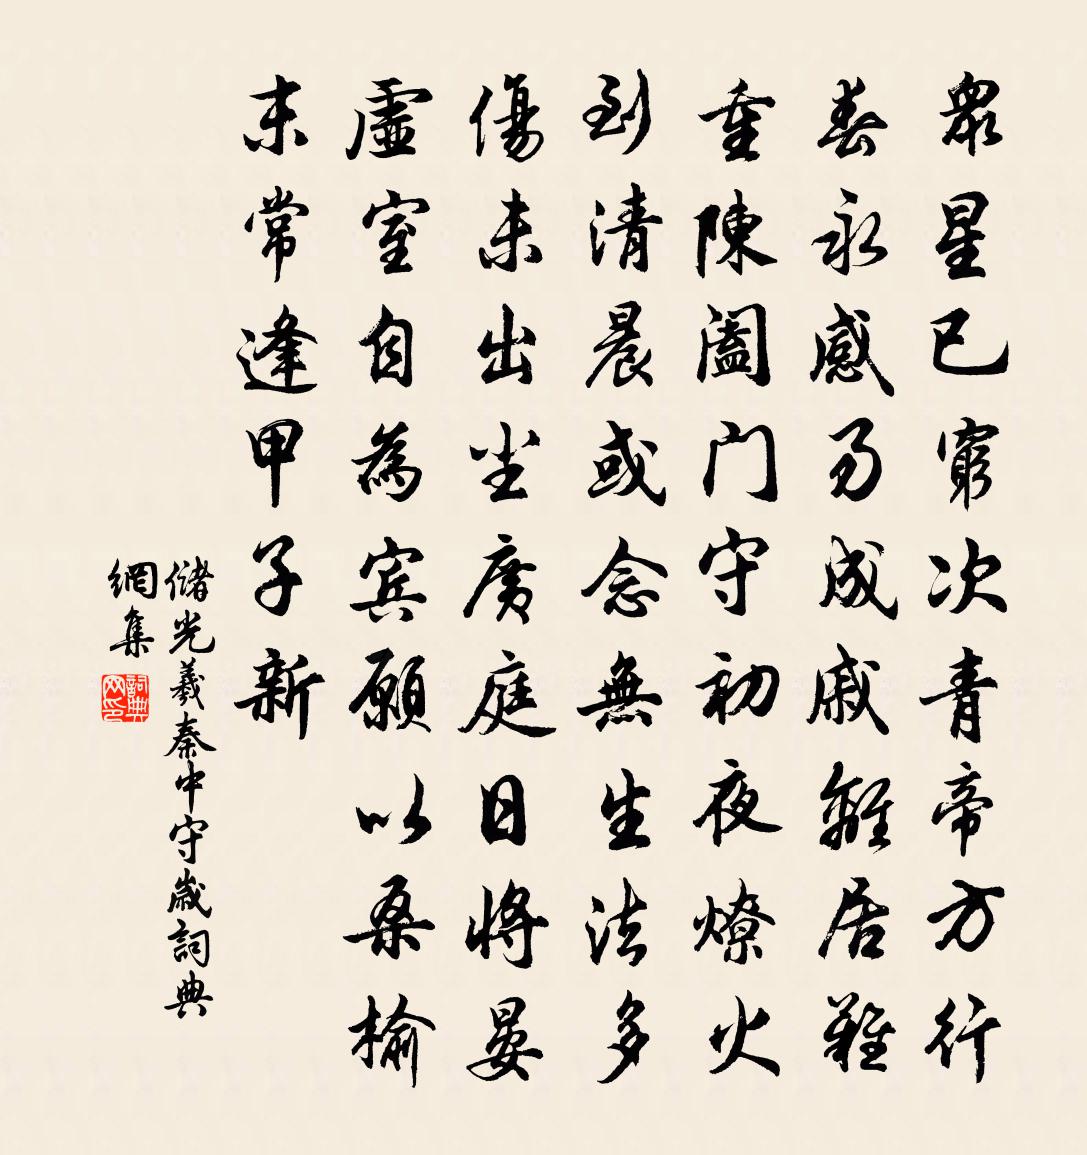 眾星已窮次青帝方行
春永感易成戚離居難
重陳闔门守初夜燎火
到清晨或念無生法多
傷未出尘廣庭日將晏
虛室自為宾願以桑榆
末常逢甲子新
儲光羲秦中守歲詞典
網集
詞典
网印